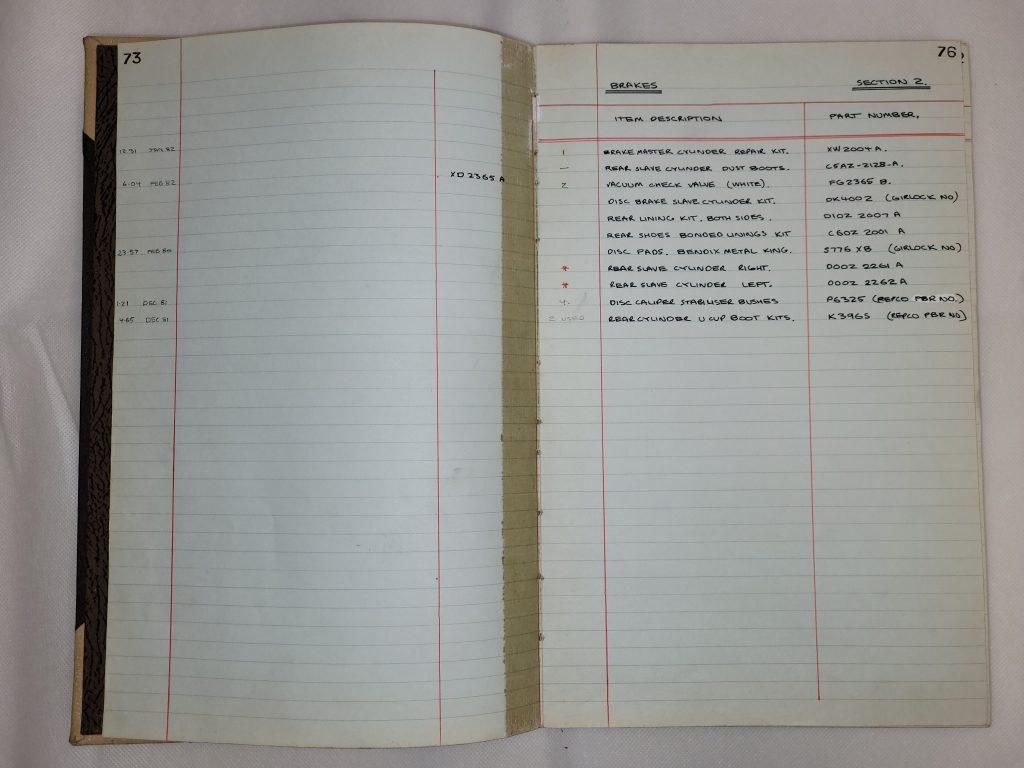 73
12.31 JAN 82
XD2365A
6.04 FEB 82
23.57 FEB 80
1.21 DEC 81
4.65 DEC 81
76
BRAKES SECTION 2.
ITEM DESCRIPTION PART NUMBER.
1 BRAKE MASTER CYLINDER REPAIR KIT. XW2004A.
— REAR SLAVE CYLINDER DUST BOOTS. C5AZ-2128-A.
2 VACUUM CHECK VALVE (WHITE). FG2365 B.
DISC BRAKE SLAVE CYLINDER KIT. DK4002 (GIRLOCK NO)
REAR LINING KIT. BOTH SIDES. D1OZ 2007 A
REAR SHOES BONDED LININGS KIT C6OZ 2001 A
DISC PADS. BENDIX METAL KING. 5776 XB (GIRLOCK NO)
* REAR SLAVE CYLINDER RIGHT. D0OZ 2261 A
* REAR SLAVE CYLINDER LEFT. D0OZ 2262 A
4. DISC CALIPER STABILISER BUSHES P6325 (REPCO PBR NO.)
2 USED REAR CYLINDER U CUP BOOT KITS. K396S (REPCO PBR NO)